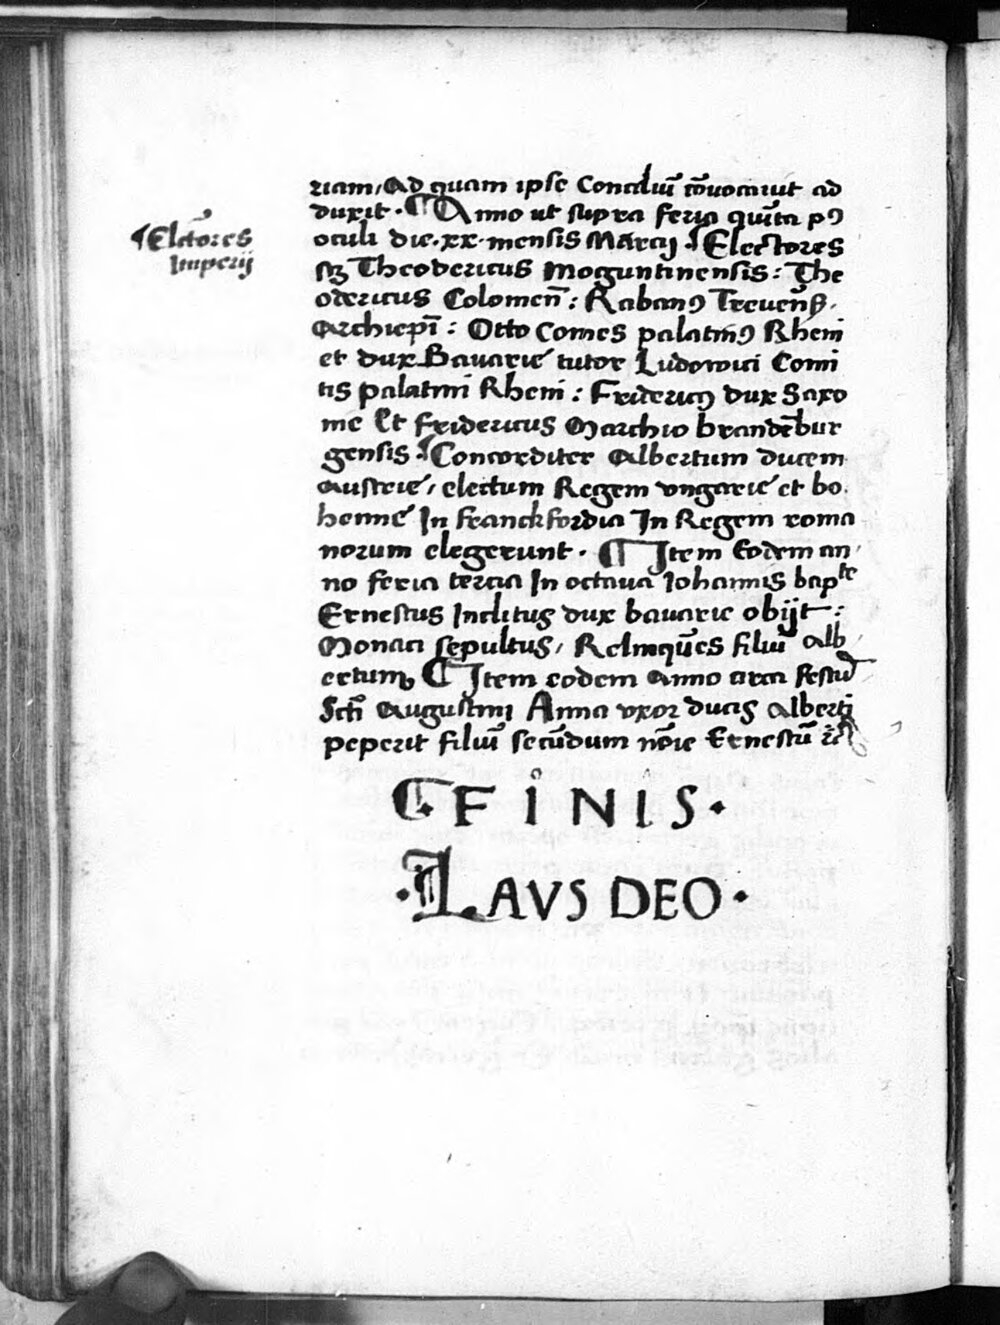 riam, Ad quam ipse Conciliū cōuocauit ad
duxit · ¶ Anno ut supra feria quīta pꝯ
¶ Electores
Imperij
oculi die · xx · mensis Marcij ¶ Electores
sꝫ Theodericus Moguntinensis : The
odericus Coloniēn : Rabanꝯ Treuerēn ·
Archiepī : Otto Comes palatinꝯ Rheni
et dux Bauarie tutor Ludowici Comi
tis palatini Rheni : Fridericꝯ dux Saxo
nie Et Fridericus Marchio brandēbur
gensis ¶ Concorditer Albertum ducem
Austrie, electum Regem vngarie et bo
hemie In Franckfordia In Regem roma
norum elegerunt · ¶ Item Eodem an
no feria tercia In octaua Iohannis bapte
Ernestus Inclitus dux bauarie obijt :
Monaci sepultus, Relinquēs filiū Alb
ertum ¶ Item eodem Anno circa festū
Scti Augustini Anna vxor ducis Alberti
peperit filiū secūdum nōie Ernestū
¶ FINIS ·
· LAVS DEO ·